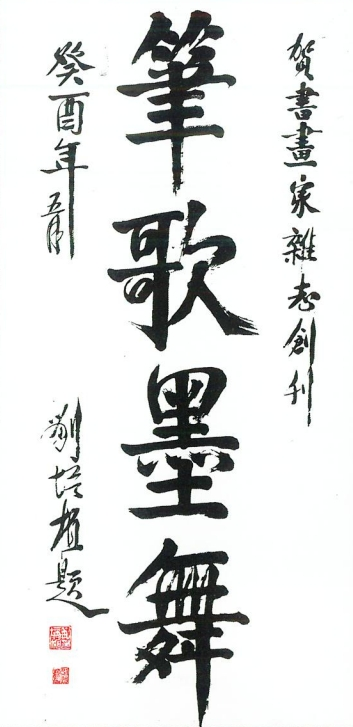 賀書畫家雜志創刊
筆歌墨舞
癸酉年五月
劉培植題